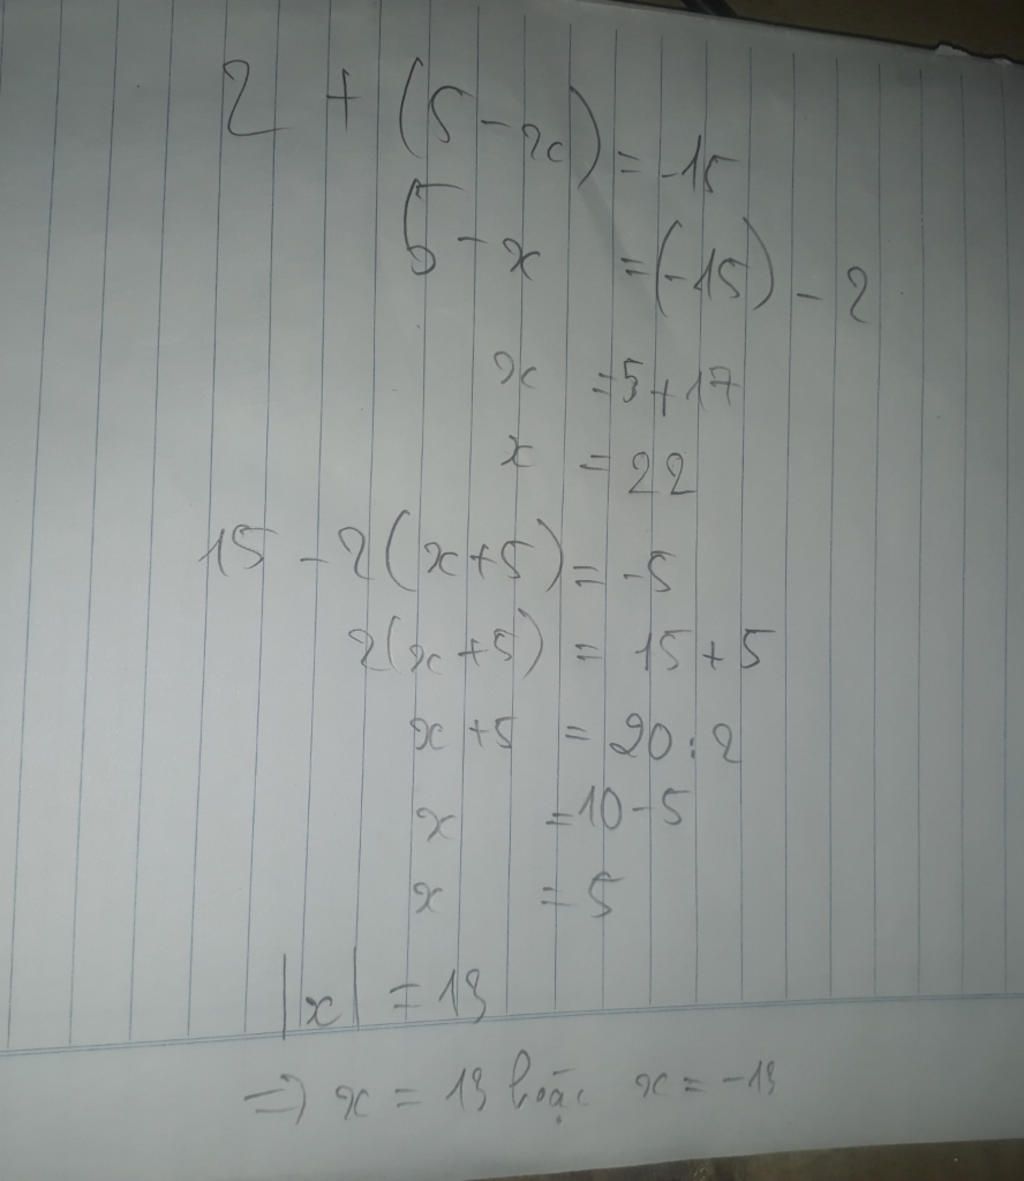 2 + (5 - x) = -15
5 - x = (-15) - 2
x = 5 + 17
x = 22
15 - 2(x + 5) = -5
2(x + 5) = 15 + 5
x + 5 = 20 : 2
x = 10 - 5
x = 5
|x| = 13
=> x = 13 hoặc x = -13